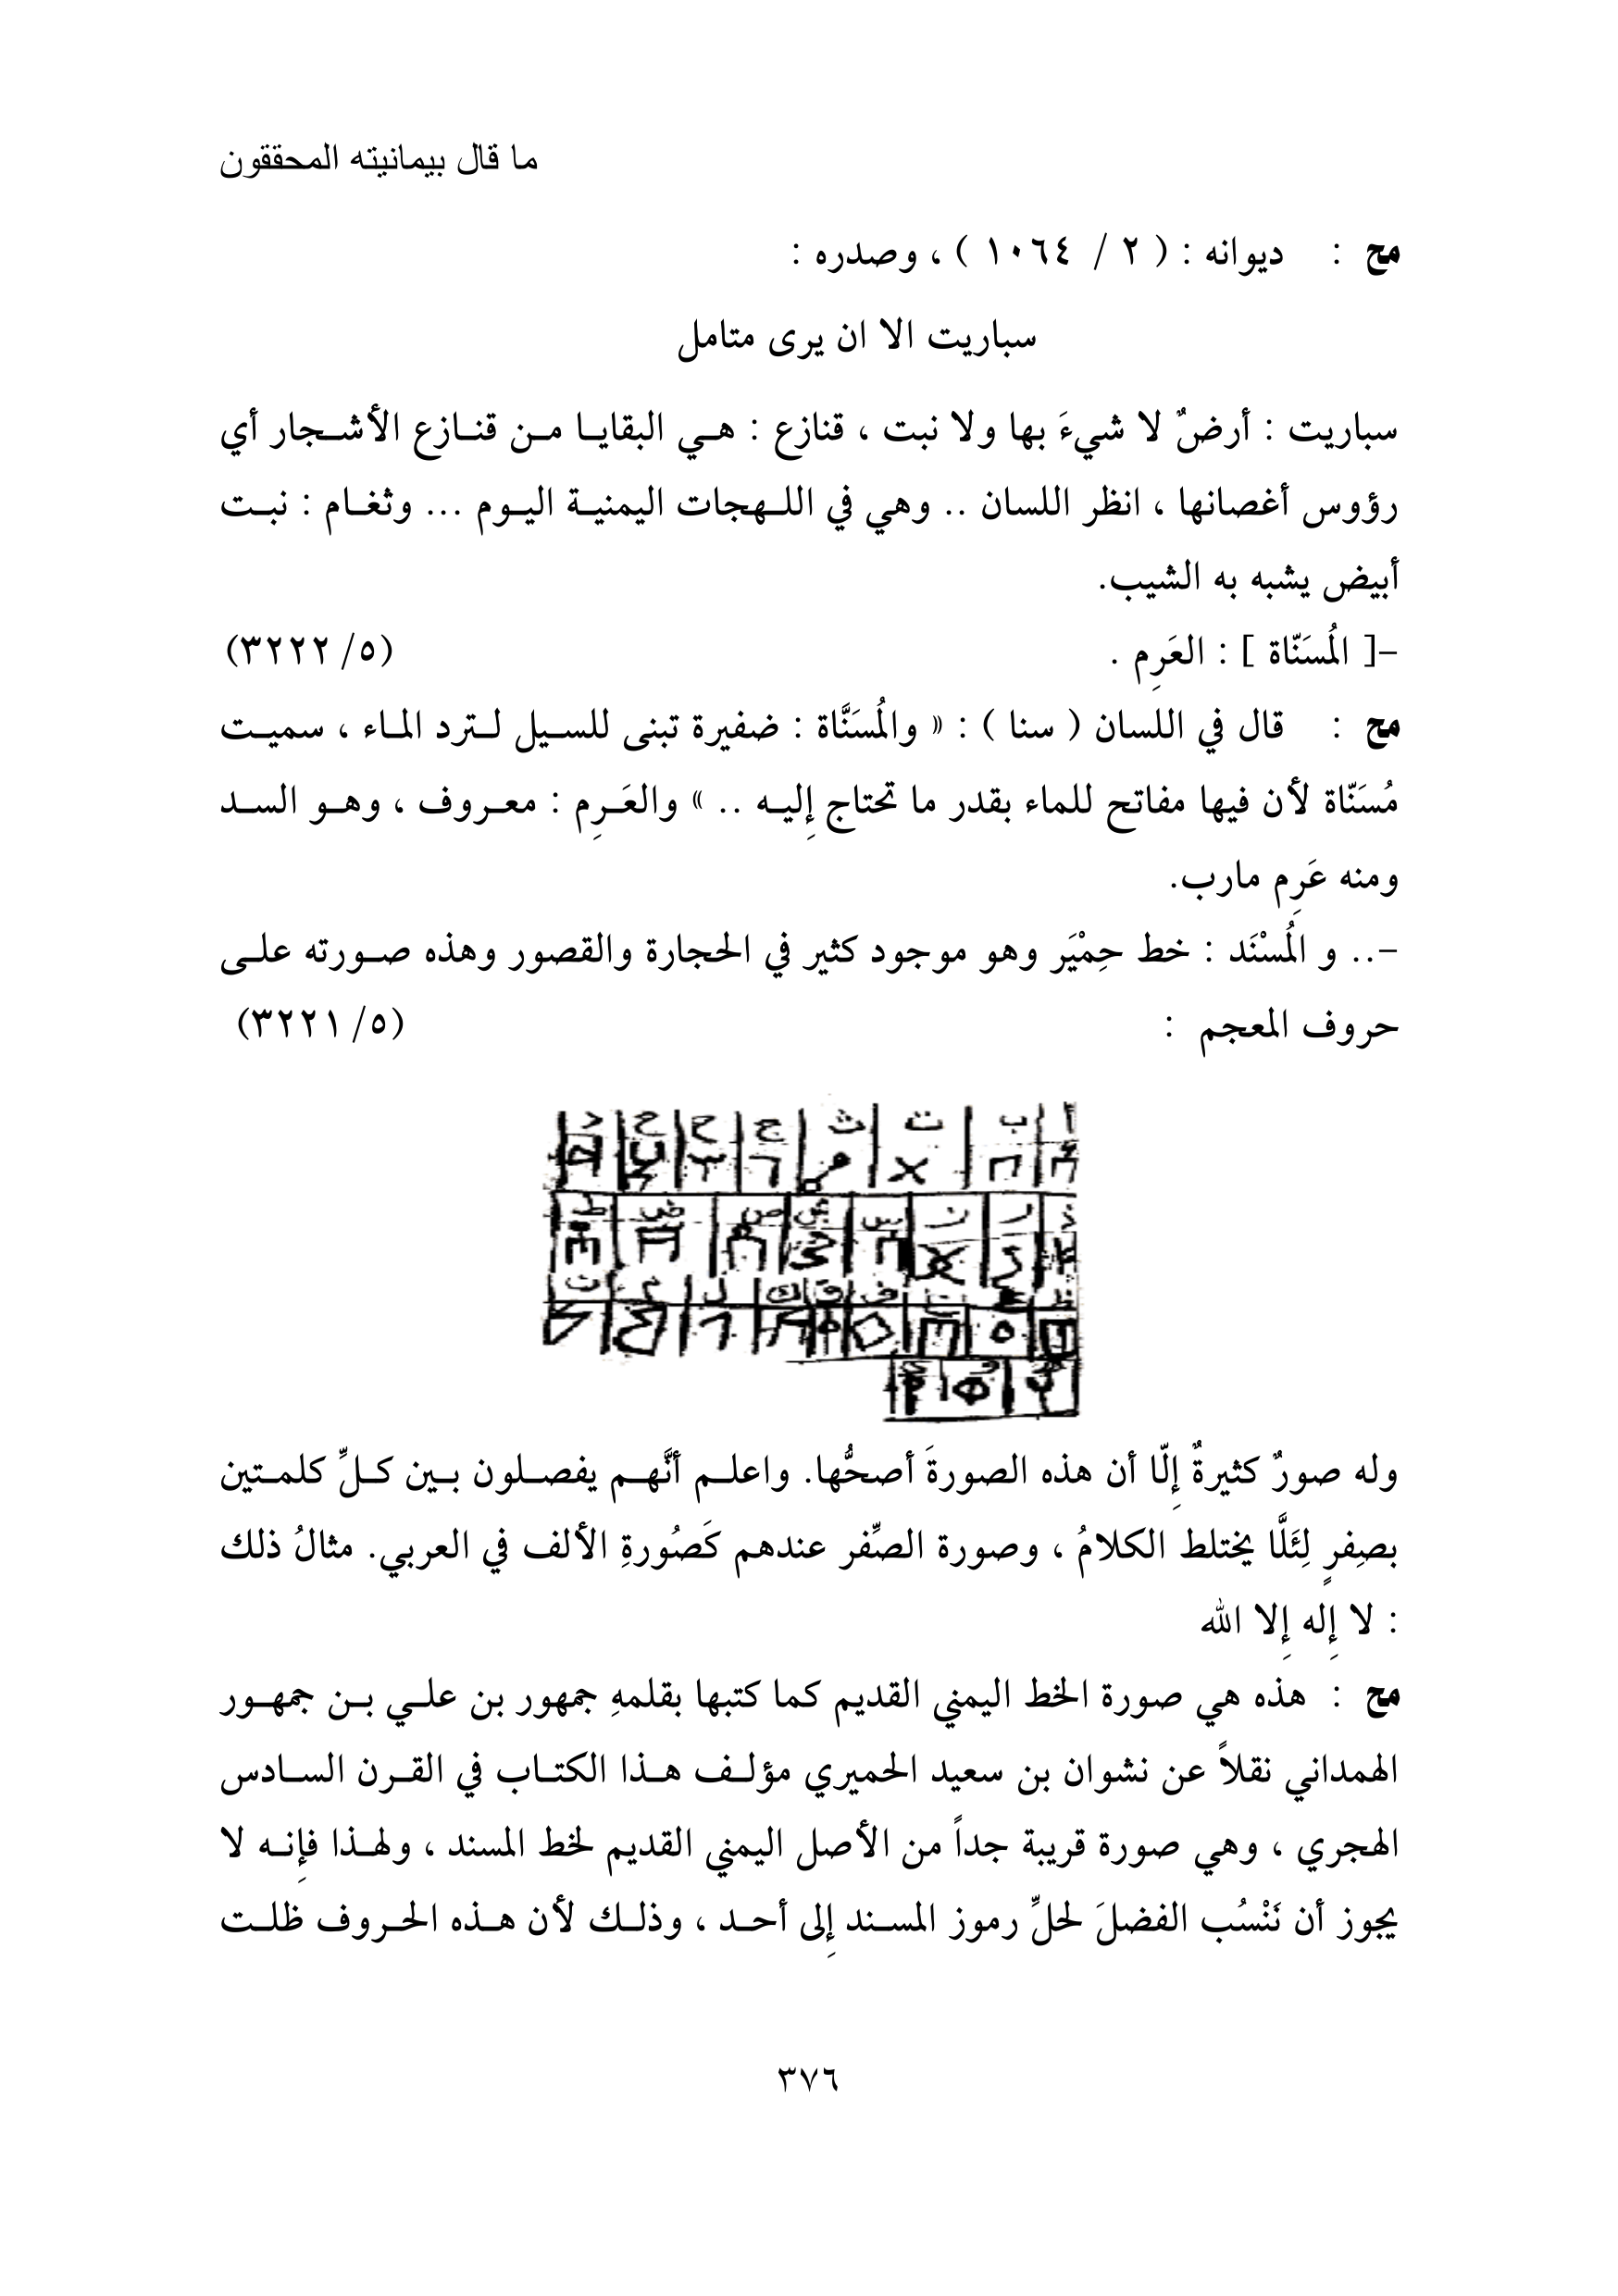 ما قال بيمانيته المحققون
مح : ديوانه : ( ٢ / ١٠٦٤ ) ، وصدره :
سباريت الا ان يرى متامل
سباريت : أرضٌ لا شيءَ بها ولا نبت ، قنازع : هي البقايا من قنازع الأشجار أي
رؤوس أغصانها ، انظر اللسان .. وهي في اللهجات اليمنية اليوم ... وثغام : نبت
أبيض يشبه به الشيب.
-[ المُسَنّاة ] : العَرِم . (٥/ ٣٢٢٢)
مح : قال في اللسان ( سنا ) : « والمُسَنَّاة : ضفيرة تبنى للسيل لترد الماء ، سميت
مُسَنّاة لأن فيها مفاتح للماء بقدر ما تحتاج إِليه .. » والعَرِم : معروف ، وهو السد
ومنه عَرِم مارب.
-.. و المُسْنَد : خط حِمْيَر وهو موجود كثير في الحجارة والقصور وهذه صورته على
حروف المعجم : (٥/ ٣٢٢١)
أ ب ت ث ج ح خ د
ذ ر ز س ش ص ض ط
ظ ع غ ف ق ك ل م ن
وله صورٌ كثيرةٌ إِلّا أن هذه الصورةَ أصحُّها. واعلم أنَّهم يفصلون بين كلِّ كلمتين
بصِفرٍ لِئَلَّا يختلط الكلامُ ، وصورة الصِّفر عندهم كَصُورةِ الألف في العربي. مثالُ ذلك
: لا إِله إِلا الله
مح : هذه هي صورة الخط اليمني القديم كما كتبها بقلمهِ جمهور بن علي بن جمهور
الهمداني نقلاً عن نشوان بن سعيد الحميري مؤلف هذا الكتاب في القرن السادس
الهجري ، وهي صورة قريبة جداً من الأصل اليمني القديم لخط المسند ، ولهذا فإِنه لا
يجوز أن نَنْسُب الفضلَ لحلِّ رموز المسند إِلى أحد ، وذلك لأن هذه الحروف ظلت
٣٧٦